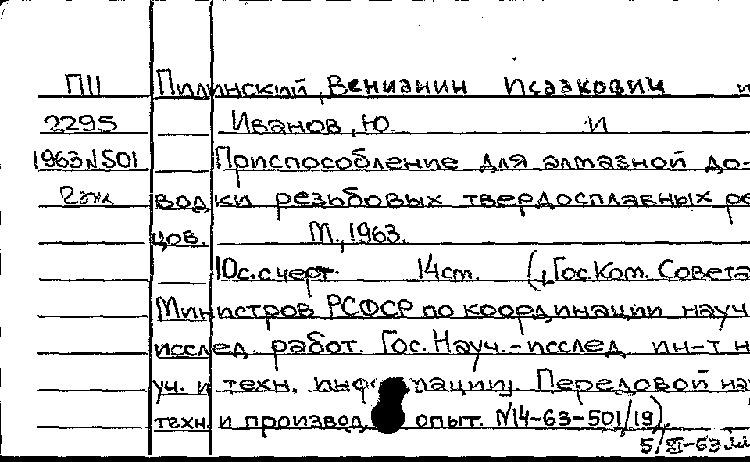 П11 Пилинский, Вениамин Исаакович и
2295 Иванов, Ю. И
1963№501 Приспособление для алмазной до-
2эк водки резьбовых твердосплавных ре
цов. М., 1963.
10с.с черт. 14см. (Гос.Ком. Совета
Министров РСФСР по координации науч
исслед. работ. Гос. Науч.-исслед. ин-т н
уч. и техн. информации. Передовой на
техн. и производ. опыт. №14-63-501/19).
5/XI-63